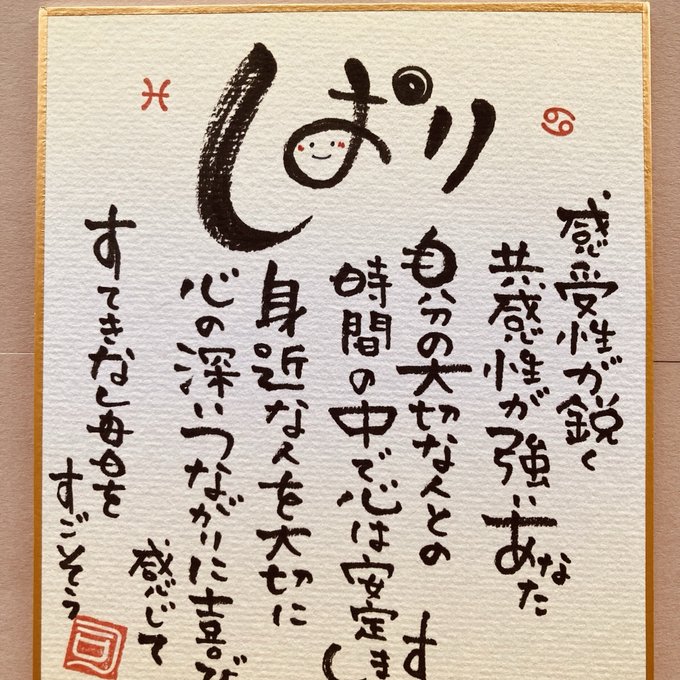 しおり
感受性が鋭く
共感性が強いあなた
自分の大切な人との
時間の中で心は安定します
身近な人を大切に
心の深いつながりに喜び
感じて
すてきな毎日を
すごそう